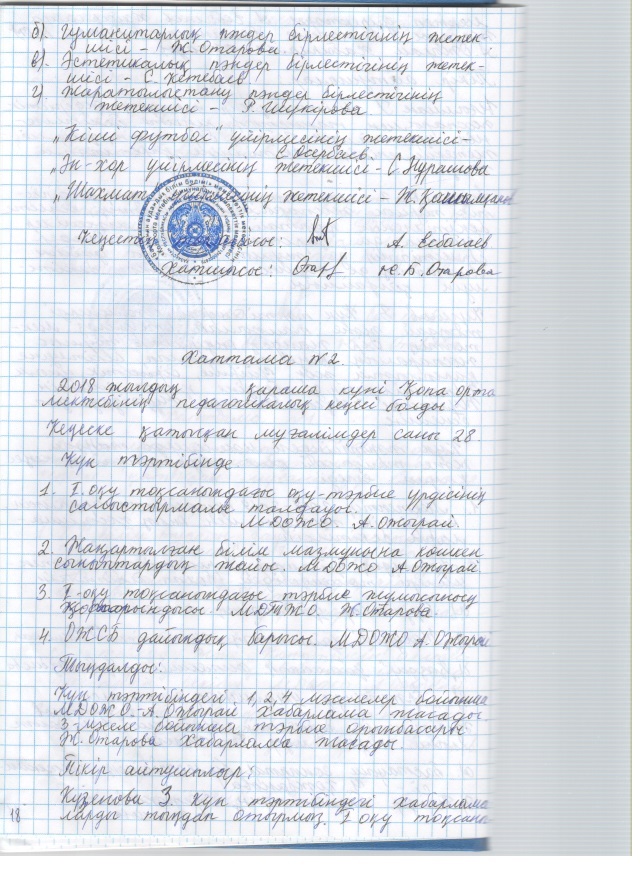 б). гуманитарлық пәндер бірлестігінің жетек-
шісі - Ж. Отарова.
в). Эстетикалық пәндер бірлестігінің жетек-
шісі - С.
г). жаратылыстану пәндер бірлестігінің
жетекшісі - Г. Шүкірова.
„Кіші футбол" үйірмесінің жетекшісі -
С
„Ән-хор үйірмесінің жетекшісі - С Нұрашова
„Шахмат жетекшісі - Ж.
Кеңестің төрағасы: А.
Хатшысы: Ж.Б. Отарова
Хаттама №2.
2018 жылдың қараша күні Қопа орта
мектебінің педагогикалық кеңесі болды
Кеңеске қатысқан мұғалімдер саны 28.
Күн тәртібінде
1. I оқу тоқсанындағы оқу-тәрбие үрдісінің
салыстырмалы талдауы.
МДОЖО. А. Ожырай.
2. Жаңартылған білім мазмұнына көшкен
сыныптардың жайы. МДОЖО А Ожырай
3. I-оқу тоқсанындағы тәрбие жұмысының
қорытындысы МДТЖО. Ж. Отарова.
4. ОЖСБ дайындық барысы. МДОЖО А. Ожырай
Тыңдалды:
Күн тәртібіндегі 1,2,4 мәселелер бойынша
МДОЖО. А. Ожырай хабарлама жасады.
3-мәселе бойынша тәрбие орынбасары
Ж. Отарова хабарлама жасады.
Пікір айтушылар:
З. Күн тәртібіндегі хабарлама
ларды тыңдап отырмыз. I оқу тоқсан
18